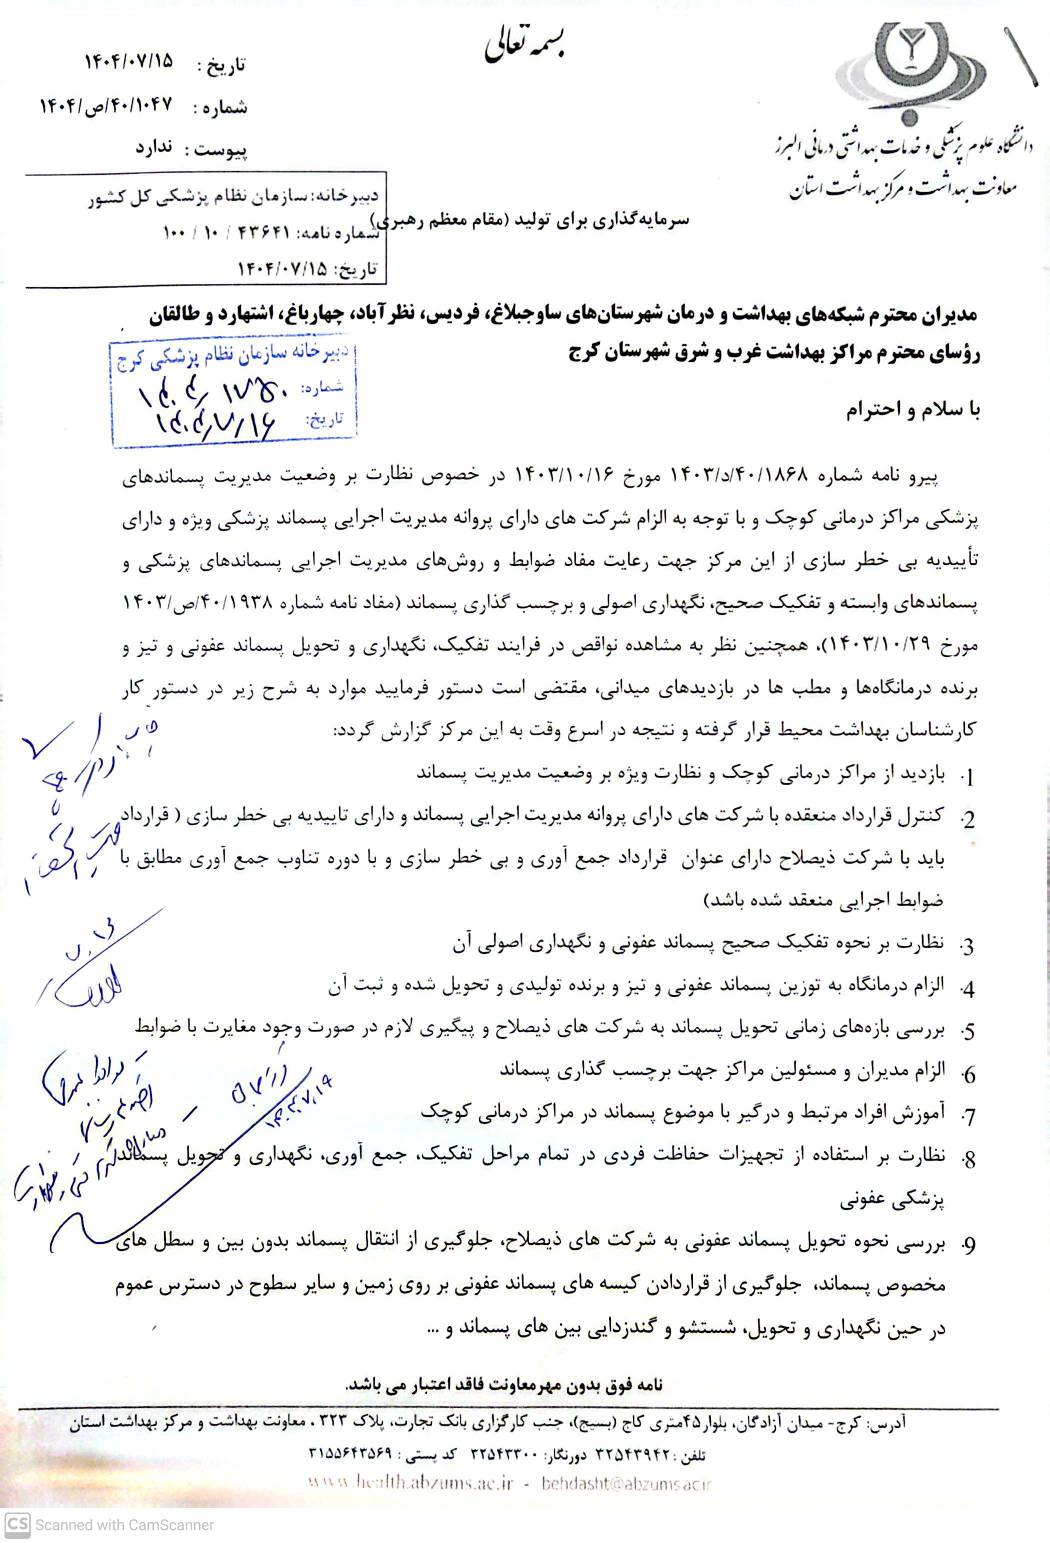 بسمه تعالی
دانشگاه علوم پزشکی و خدمات بهداشتی درمانی البرز
معاونت بهداشت و مرکز بهداشت استان
تاریخ : ۱۴۰۴/۰۷/۱۵
شماره : ۱۴۰۴/ص/۴۰/۱۰۴۷
پیوست : ندارد
دبیرخانه: سازمان نظام پزشکی کل کشور
شماره نامه: ۴۳۶۴۱ / ۱۰ / ۱۰۰
تاریخ: ۱۴۰۴/۰۷/۱۵
سرمایه‌گذاری برای تولید (مقام معظم رهبری)
مدیران محترم شبکه‌های بهداشت و درمان شهرستان‌های ساوجبلاغ، فردیس، نظرآباد، چهارباغ، اشتهارد و طالقان
رؤسای محترم مراکز بهداشت غرب و شرق شهرستان کرج
دبیرخانه سازمان نظام پزشکی کرج
شماره:
تاریخ: ۱۴۰۴/۷/۱۶
با سلام و احترام
پیرو نامه شماره ۱۴۰۳/د/۴۰/۱۸۶۸ مورخ ۱۴۰۳/۱۰/۱۶ در خصوص نظارت بر وضعیت مدیریت پسماندهای
پزشکی مراکز درمانی کوچک و با توجه به الزام شرکت های دارای پروانه مدیریت اجرایی پسماند پزشکی ویژه و دارای
تأییدیه بی خطر سازی از این مرکز جهت رعایت مفاد ضوابط و روش‌های مدیریت اجرایی پسماندهای پزشکی و
پسماندهای وابسته و تفکیک صحیح، نگهداری اصولی و برچسب گذاری پسماند (مفاد نامه شماره ۱۴۰۳/ص/۴۰/۱۹۳۸
مورخ ۱۴۰۳/۱۰/۲۹)، همچنین نظر به مشاهده نواقص در فرایند تفکیک، نگهداری و تحویل پسماند عفونی و تیز و
برنده درمانگاه‌ها و مطب ها در بازدیدهای میدانی، مقتضی است دستور فرمایید موارد به شرح زیر در دستور کار
کارشناسان بهداشت محیط قرار گرفته و نتیجه در اسرع وقت به این مرکز گزارش گردد:
1. بازدید از مراکز درمانی کوچک و نظارت ویژه بر وضعیت مدیریت پسماند
2. کنترل قرارداد منعقده با شرکت های دارای پروانه مدیریت اجرایی پسماند و دارای تاییدیه بی خطر سازی ( قرارداد
باید با شرکت ذیصلاح دارای عنوان قرارداد جمع آوری و بی خطر سازی و با دوره تناوب جمع آوری مطابق با
ضوابط اجرایی منعقد شده باشد)
3. نظارت بر نحوه تفکیک صحیح پسماند عفونی و نگهداری اصولی آن
4. الزام درمانگاه به توزین پسماند عفونی و تیز و برنده تولیدی و تحویل شده و ثبت آن
5. بررسی بازه‌های زمانی تحویل پسماند به شرکت های ذیصلاح و پیگیری لازم در صورت وجود مغایرت با ضوابط
6. الزام مدیران و مسئولین مراکز جهت برچسب گذاری پسماند
7. آموزش افراد مرتبط و درگیر با موضوع پسماند در مراکز درمانی کوچک
8. نظارت بر استفاده از تجهیزات حفاظت فردی در تمام مراحل تفکیک، جمع آوری، نگهداری و تحویل پسماند
پزشکی عفونی
9. بررسی نحوه تحویل پسماند عفونی به شرکت های ذیصلاح، جلوگیری از انتقال پسماند بدون بین و سطل های
مخصوص پسماند، جلوگیری از قراردادن کیسه های پسماند عفونی بر روی زمین و سایر سطوح در دسترس عموم
در حین نگهداری و تحویل، شستشو و گندزدایی بین های پسماند و ...
نامه فوق بدون مهرمعاونت فاقد اعتبار می باشد.
آدرس: کرج- میدان آزادگان، بلوار۴۵متری کاج (بسیج)، جنب کارگزاری بانک تجارت، پلاک ۳۲۳ ، معاونت بهداشت و مرکز بهداشت استان
تلفن : ۳۲۵۴۳۹۴۲ دورنگار: ۳۲۵۴۳۳۰۰ کد پستی : ۳۱۵۵۶۴۳۵۶۹
www.health.abzums.ac.ir - behdasht@abzums.ac.ir
CS Scanned with CamScanner